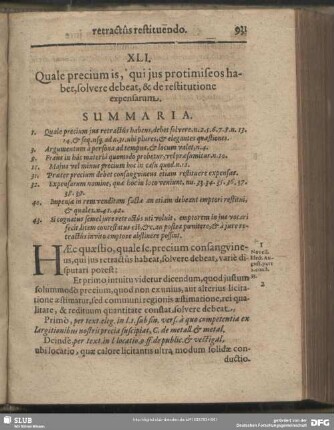 retractûs restituendo.
931
XLI.
Quale precium is, qui jus protimiseos ha-
bet, solvere debeat, & de restitutione
expensarum.
SUMMARIA.
1. Quale precium jus retractûs habens, debet solvere. n. 2. 5. 6. 7. 8. n. 13.
14. & seq. usq. ad n. 31. ubi plures, & elegantes quæstiones.
3. Argumentum à persona ad tempus, & locum valet, n. 4.
9. Fraus in hac materiâ quomodo probetur, vel præsumatur. n. 10.
11. Majus vel minus precium hoc in casu quod. n. 12.
31. Præter precium debet consanguineus etiam restituere expensas.
32. Expensarum nomine, quæ hoc in loco veniant. nu. 33. 34. 35. 36. 37.
38. 39.
40. Impensæ in rem venditam factæ an etiam debeant emptori restitui,
& quales. n. 41. 42.
43. Si cognatus semel jure retractûs uti voluit, emptorem in jus vocari
fecit litem contestatus est, &c. an postea pœnitere, & à jure re-
tractûs invito emptore abstinere possit.
HÆc quæstio, quale sc. precium consangvine-
us, qui jus retractûs habeat, solvere debeat, variè di-
sputari potest:
Et primo intuitu videtur dicendum, quod justum
solummodò precium, quod non ex unius, aut alterius licita-
tione æstimatur, sed communi regionis æstimatione, rei qua-
litate, & redituum quantitate constat, solvere debeat.
1
2
Primò, per text. eleg. in
largitionibus nostris precia suscipias, C. de metall. & metal.
Deinde, per text. in l. locatio. 9. ff. de public. & vectigal.
ubi locatio, quæ calore licitantis ultra modum solitæ con-
ductio.
SLUB
Wir führen Wissen.
http://digital.slub-dresden.de/
Gefördert von der
Deutschen Forschungsgemeinschaft
DFG